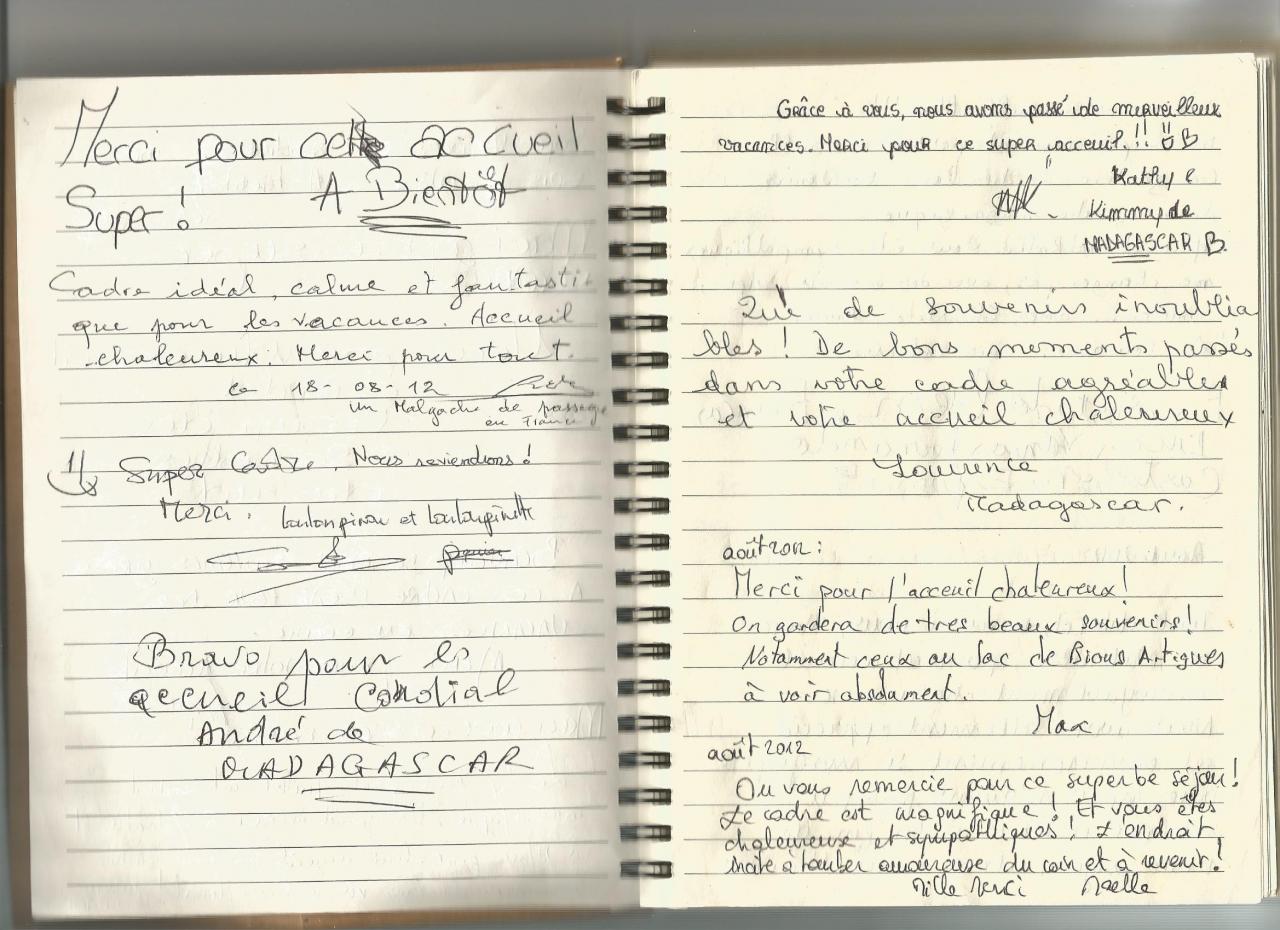 Merci pour cette accueil
Super! A Bientôt
Cadre idéal, calme et fantasti-
que pour les vacances. Accueil
chaleureux. Merci pour tout.
Le 18-08-12
un Malgache de passage
en France
Super Cadre. Nous reviendrons!
Merci. Louloupinou et Louloupinette
Bravo pour les
accueil Cordial
André de
MADAGASCAR
Grâce à vous, nous avons passé de merveilleux
vacances. Merci pour ce super acceuil.!!
Kathy &
Kimmy de
MADAGASCAR B.
Que de souvenirs inoublia
bles! De bons moments passés
dans votre cadre agréable
et votre accueil chaleureux
Lourence
Madagascar.
août 2012:
Merci pour l'acceuil chaleureux!
On gardera de tres beaux souvenirs!
Notamment ceux au lac de Bious Artigues
à voir absolument.
Max
août 2012
On vous remercie pour ce superbe séjour!
Le cadre est magnifique! Et vous êtes
chaleureuse et sympathiques! L'endroit
incite à tomber amoureuse du coin et à revenir!
Mille merci Maelle